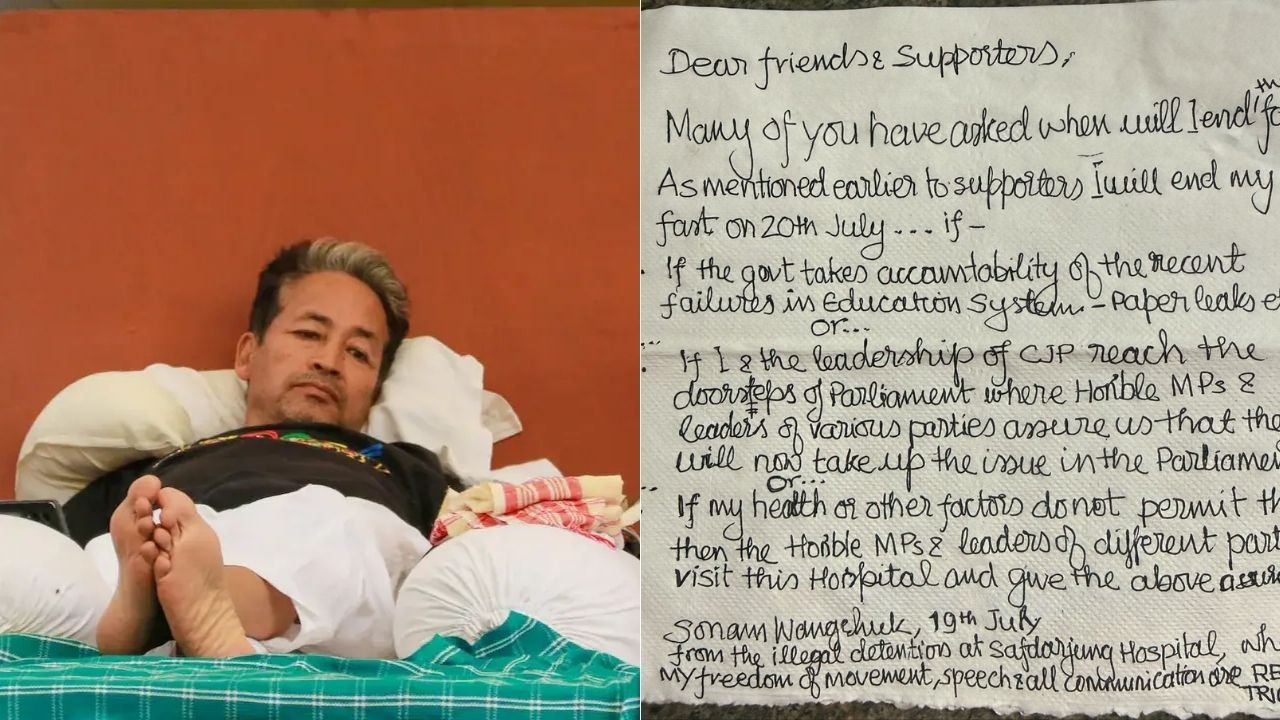 Dear friends & Supporters,
Many of you have asked when will I end th
As mentioned earlier to supporters I will end my
fast on 20th July .... if –
If the govt takes accountability of the recent
failures in Education System – Paper leaks
or...
If I & the leadership of CJP reach the
doorsteps of Parliament where Hon'ble MPs &
leaders of various parties assure us that the
will now take up the issue in the
or...
If my health or other factors do not permit
then the Hon'ble MPs & leaders of different
visit this Hospital and give the above
Sonam Wangchuk, 19th July
from the illegal detention at Safdarjung Hospital,
My freedom of movement, speech & all communication are RE
TRI